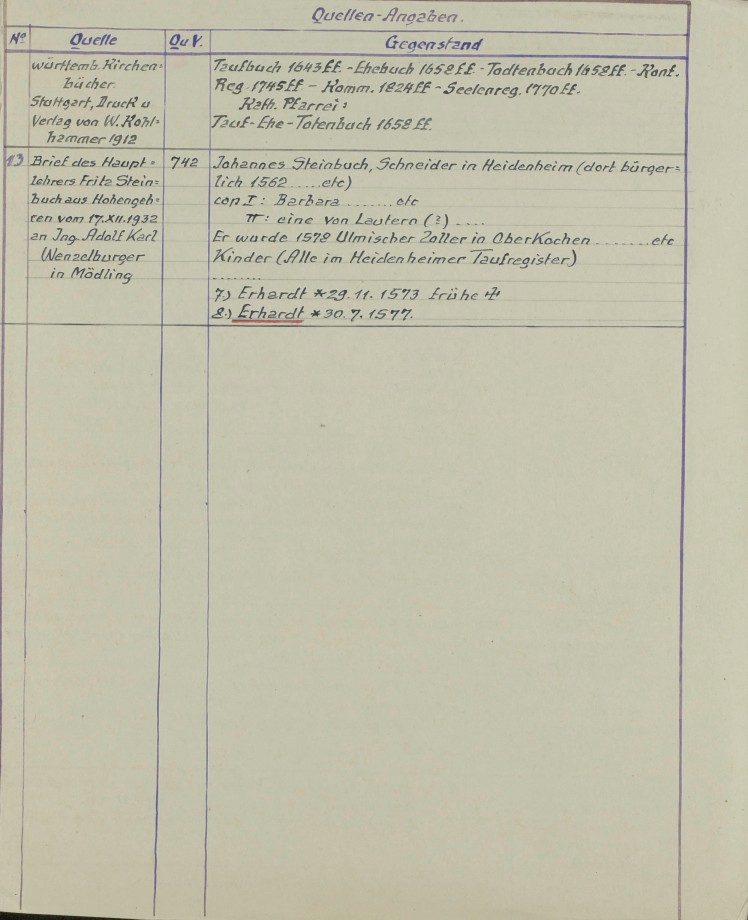 Quellen-Angaben.
No Quelle Qu V. Gegenstand
württemb. Kirchen=
bücher.
Stuttgart, Druck u
Verlag von W. Kohl=
hammer 1912
Taufbuch 1643 ff. - Ehebuch 1658 ff - Todtenbuch 1658 ff. - Konf.
Reg. 1745 ff - Komm. 1824 ff - Seelenreg. 1770 ff.
Kath. Pfarrei:
Tauf - Ehe - Totenbuch 1658 ff.
13 Brief des Haupt=
lehrers Fritz Stein=
buch aus Hohengeh=
ren vom 17.XII.1932
an Ing. Adolf Karl
Wenzelburger
in Mödling
742
Johannes Steinbuch, Schneider in Heidenheim (dort bürger=
lich 1562 .... etc)
cop I: Barbara ....... etc
II: eine von Lautern (?) ....
Er wurde 1578 Ulmischer Zoller in Oberkochen ....... etc
Kinder (Alle im Heidenheimer Taufregister)
........
7.) Erhardt * 29. 11. 1573 frühe
8.) Erhardt * 30. 7. 1577.